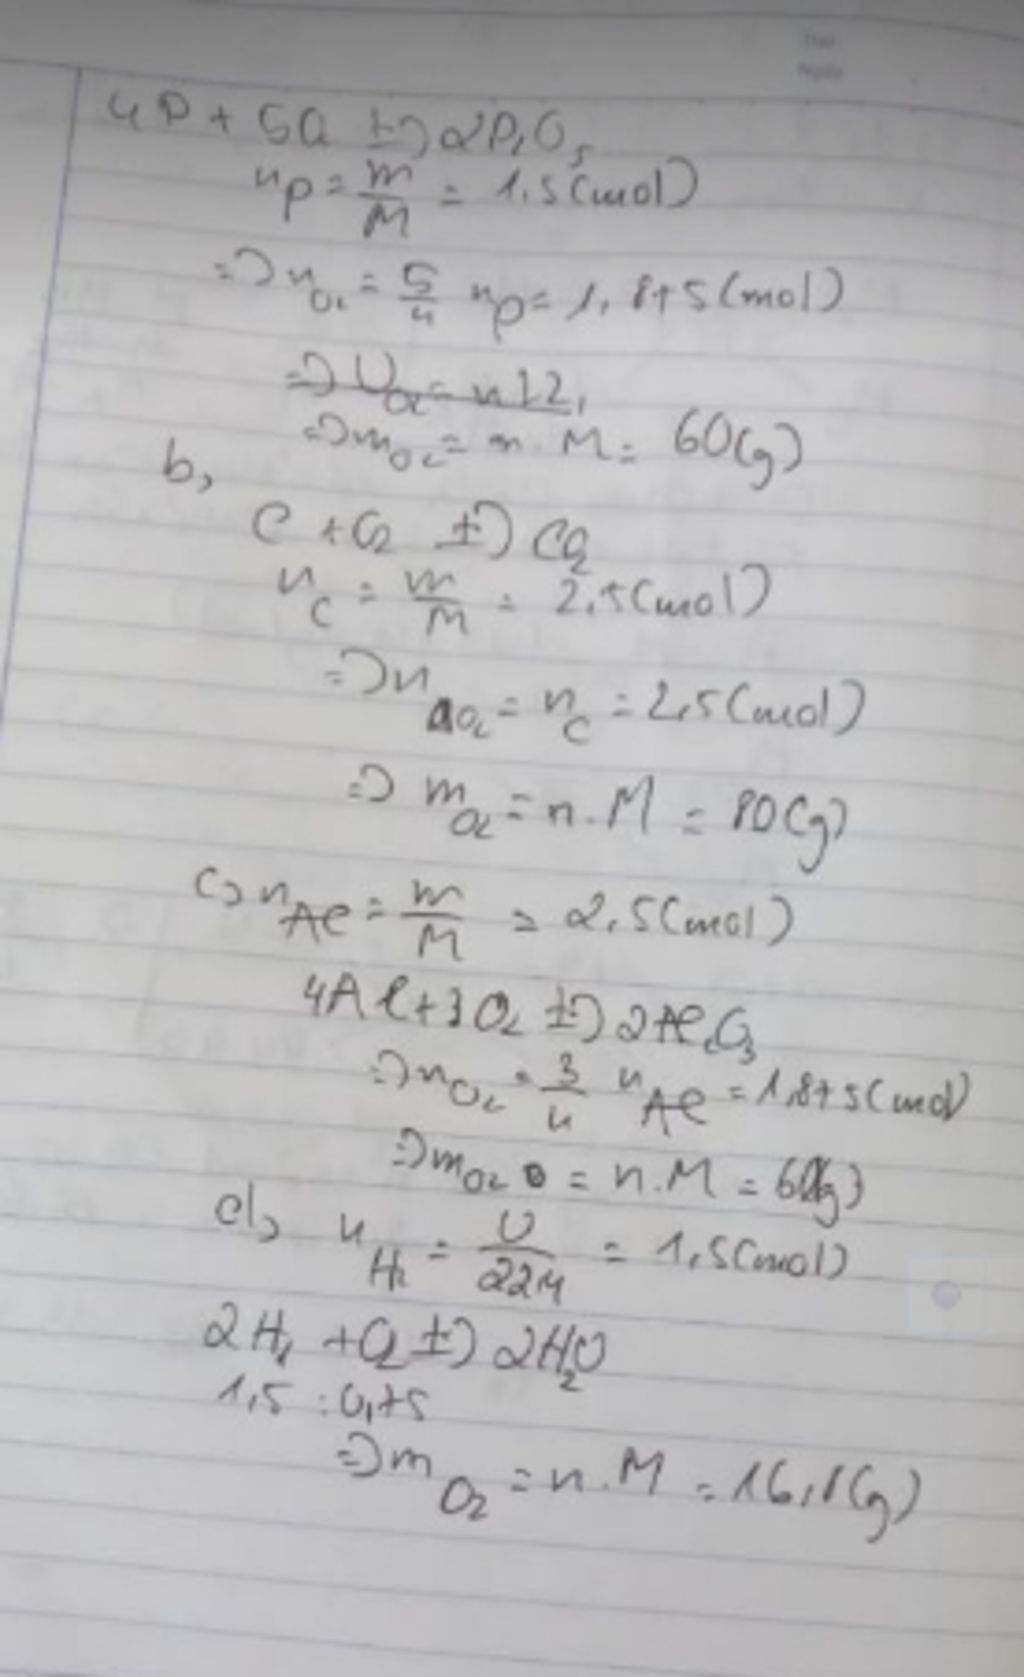 4P + 5O₂ t°→ 2P₂O₅
nP = m/M = 1.5 (mol)
=> nO₂ = 5/4 nP = 1,875 (mol)
=> mO₂ = n.M = 60(g)
b,
C + O₂ t°→ CO₂
nC = m/M = 2,5 (mol)
=> nO₂ = nC = 2,5 (mol)
=> mO₂ = n.M = 80(g)
c, nAl = m/M = 2,5 (mol)
4Al + 3O₂ t°→ 2Al₂O₃
=> nO₂ = 3/4 nAl = 1,875 (mol)
=> mO₂ = n.M = 60(g)
d, nH₂ = V/22,4 = 1,5 (mol)
2H₂ + O₂ t°→ 2H₂O
1,5 : 0,75
=> mO₂ = n.M =